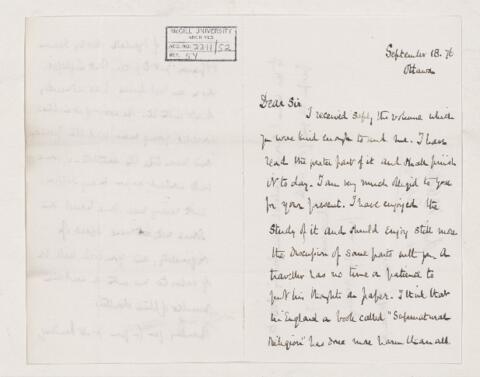 McGILL UNIVERSITY
ARCHIVES
ACC. NO. 2211/52
REF. 54
September 18. 76
Ottawa
Dear Sir
I received safely the volume which
you were kind enough to send me. I have
read the greater part of it and shall finish
it to day. I am very much obliged to you
for your present. I have enjoyed the
study of it and should enjoy still more
the discussion of some parts with you. A
traveller has no time or patience to
put his thoughts on paper. I think that
in England a book called "Supernatural
Religion" has done more harm than all